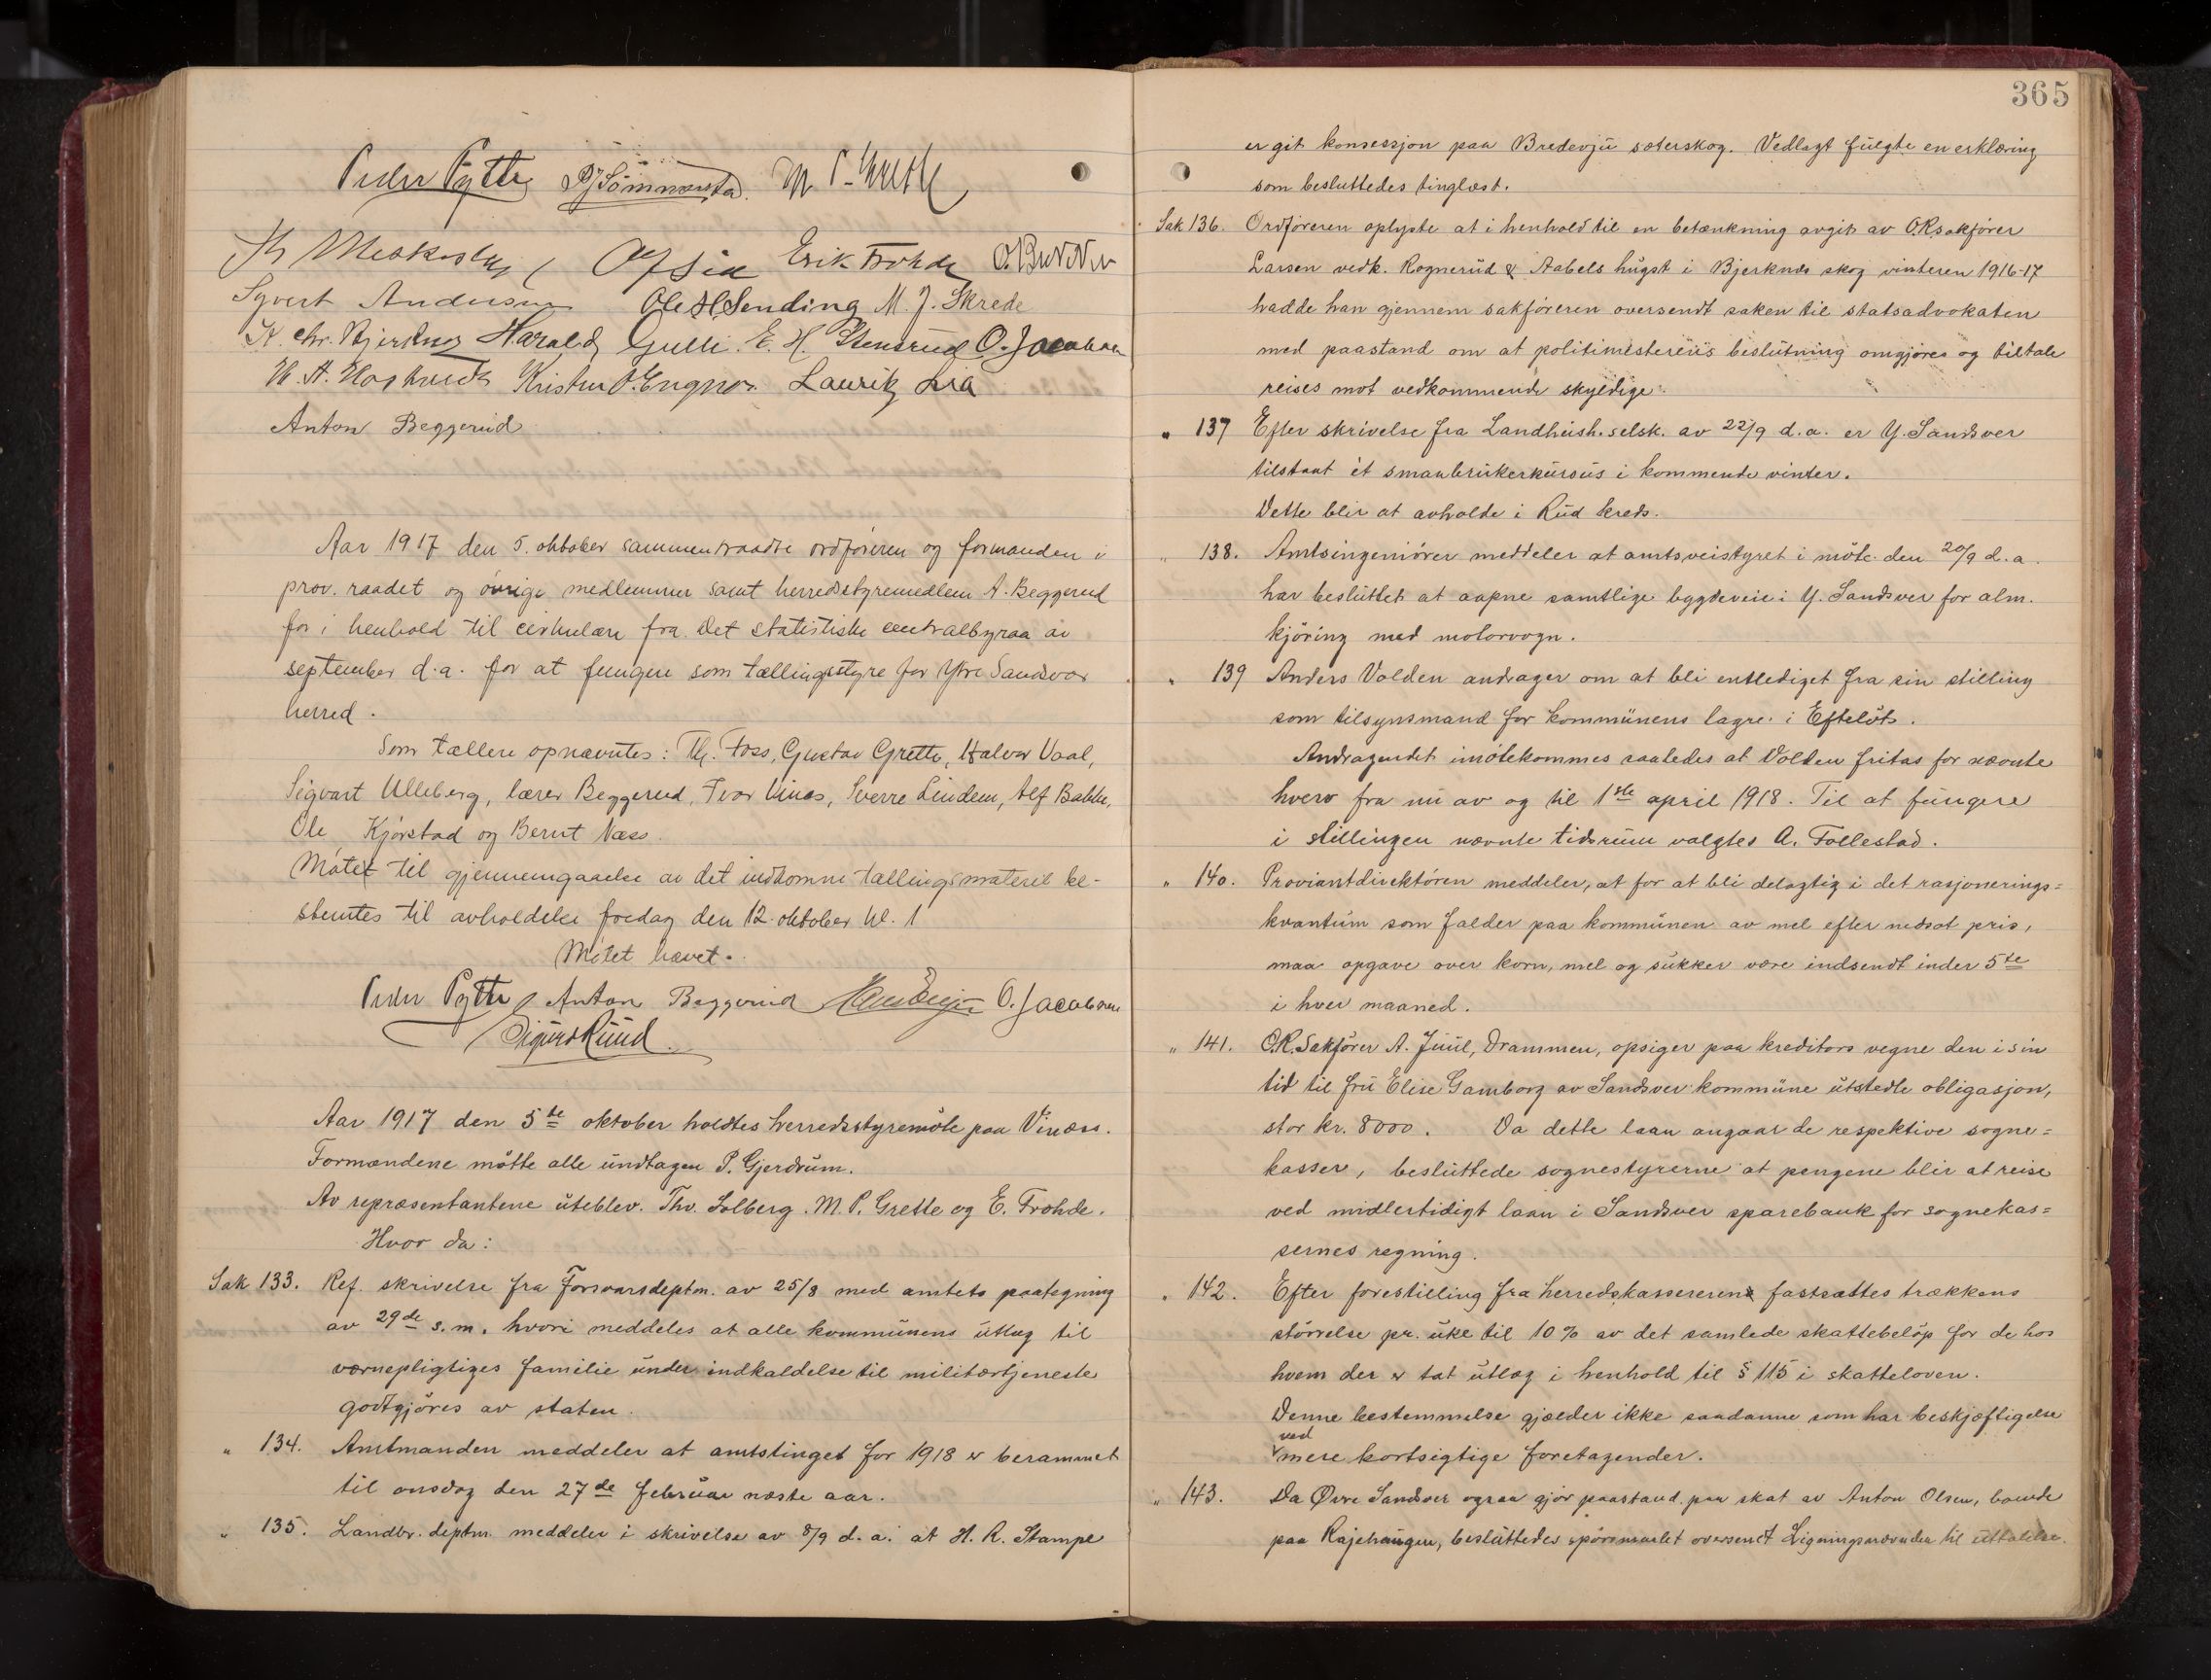 Peder Pytte P. J. Sømmærsta M. P. Grette
Alf Lia Erik Frohde
Syvert Anderssen Ole H. Sending M. J. Skrede
K. Chr. Bjerknes Harald Gulli E. H. Stensrud O. Jacobsen
Kristian O. Engnæs Lauritz Lia
Anton Beggerud
Aar 1917 den 5. oktober sammentraadte ordføreren og formanden i
prov. raadet og øvrige medlemmer samt herredsstyremedlem A. Beggerud
for i henhold til cirkulære fra Det statistiske centralbyraa av
september d.a. for at fungere som tællingsstyre for Ytre Sandsvær
herred.
Som tællere opnævntes: Th. Foss, Gustav Grette, Halvor Vaal,
Sigvart Ulleberg, lærer Beggerud, Ivar Vinæs, Sverre Lindem, Alf Bakke,
Ole Kjørstad og Bernt Næss.
Møtet til gjennemgaaelse av det indkomne tællingsmateriel be-
stemtes til avholdelse fredag den 12. oktober kl. 1
Møtet hævet.
Peder Pytte Anton Beggerud O. Jacobsen
Sigurd Ruud.
Aar 1917 den 5te oktober holdtes herredsstyremøte paa Vinæss.
Formændene møtte alle undtagen P. Gjerdrum.
Av repræsentantene uteblev. Thv. Solberg. M. P. Grette og E. Frohde.
Hvor da:
Sak 133. Ref. skrivelse fra Forsvarsdeptm. av 25/8 med amtets paategning
av 29de s.m. hvori meddeles at alle kommunens utlæg til
værnepligtiges familie under indkaldelse til militærtjeneste
godtgjøres av staten.
" 134. Amtmanden meddeler at amtstinget for 1918 er berammet
til onsdag den 27de februar næste aar.
" 135. Landbr. deptm. meddeler i skrivelse av 8/9 d.a. at H. R. Stampe
365
er git konsessjon paa Bredevju sæterskog. Vedlagt fulgte en erklæring
som besluttedes tinglæst.
Sak 136. Ordføreren oplyste at i henhold til en betænkning avgit av O.R.sakfører
Larsen vedk. Rognerud & Aabels hugst i Bjerknes skog vinteren 1916-17
hadde han gjennem sakføreren oversendt saken til statsadvokaten
med paastand om at politimesterens beslutning omgjøres og tiltale
reises mot vedkommende skyldige.
" 137 Efter skrivelse fra Landhush. selsk. av 22/9 d.a. er Y. Sandsver
tilstaat et smaabrukerkursus i kommende vinter.
Dette blir at avholde i Rud kreds.
" 138. Amtsingeniøren meddeler at amtsveistyret i møte den 20/9 d.a.
har besluttet at aapne samtlige bygdeveie i Y. Sandsver for alm.
kjøring med motorvogn.
" 139 Anders Volden andrager om at bli entlediget fra sin stilling
som tilsynsmand for kommunens lagre i Efteløt.
Andragendet imøtekommes saaledes at Volden fritas for nævnte
hverv fra nu av og til 1ste april 1918. Til at fungere
i stillingen nævnte tidsrum valgtes A. Follestad.
" 140. Proviantdirektøren meddeler, at for at bli delagtig i det rasjonerings=
kvantum som falder paa kommunen av mel efter nedsat pris,
maa opgave over korn, mel og sukker være indsendt inden 5te
i hver maaned.
" 141. O.R.Sakfører A. Juul, Drammen, opsiger paa kreditors vegne den i sin
tid til fru Elise Gamborg av Sandsver kommune utstedte obligasjon,
stor kr. 8000. Da dette laan angaar de respektive sogne=
kasser, besluttede sognestyrerne at pengene blir at reise
ved midlertidigt laan i Sandsver sparebank for sognekas=
sernes regning.
" 142. Efter forestilling fra herredskassereren fastsættes trækkens
størrelse pr. uke til 10 % av det samlede skattebeløp for de hos
hvem der er tat utlæg i henhold til § 115 i skatteloven.
Denne bestemmelse gjælder ikke saadanne som har beskjæftigelse
ved mere kortsigtige foretagender.
" 143. Da Øvre Sandsver ogsaa gjør paastand paa skat av Anton Olsen, boende
paa Rajehaugen, besluttedes spørsmaalet oversendt Ligningsnævnden til uttalelse.